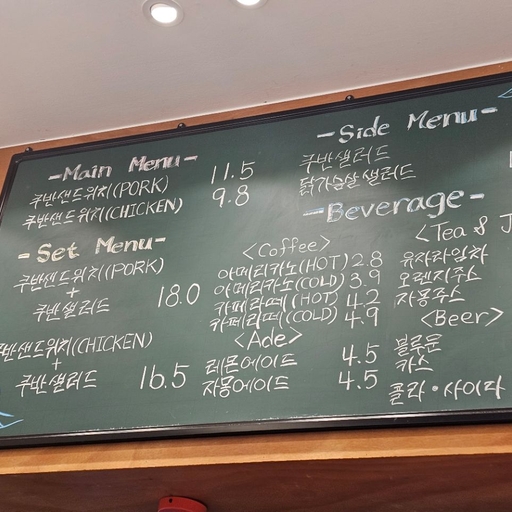 -Main Menu-
쿠반샌드위치(PORK) 11.5
쿠반샌드위치(CHICKEN) 9.8
-Set Menu-
쿠반샌드위치(PORK)
+
쿠반샐러드 18.0
쿠반샌드위치(CHICKEN)
+
쿠반샐러드 16.5
-Side Menu-
쿠반샐러드
닭가슴살샐러드
-Beverage-
<Coffee>
아메리카노(HOT) 2.8
아메리카노(COLD) 3.9
카페라떼(HOT) 4.2
카페라떼(COLD) 4.9
<Ade>
레몬에이드 4.5
자몽에이드 4.5
<Tea & J
유자차임차
오렌지주스
자몽주스
<Beer>
블루문
카스
콜라·사이다